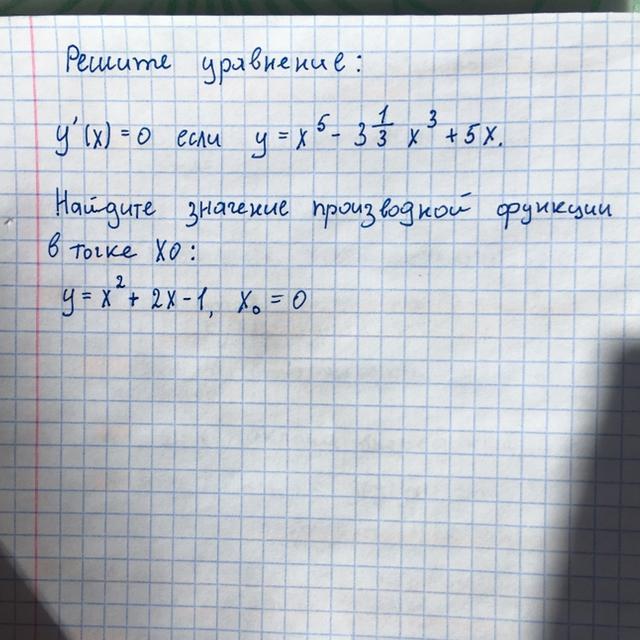 Решите уравнение:
y'(x) = 0 если y = x⁵ - 3 1/3 x³ + 5x.
Найдите значение производной функции
в точке X0:
y = x² + 2x - 1, x₀ = 0